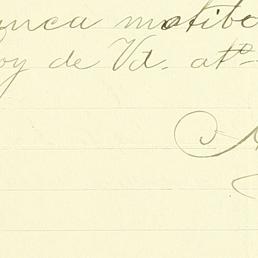 unca motibo
oy de Vd. atº